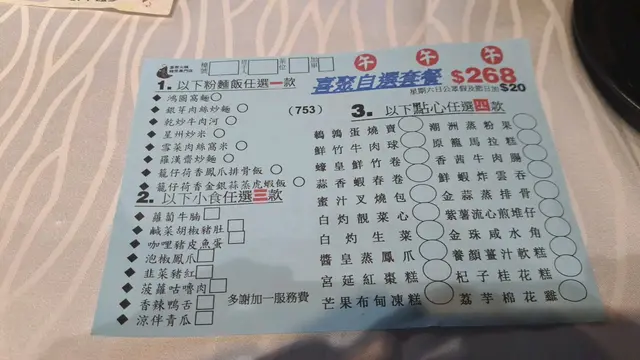 午 午 午
喜聚自選套餐 $268
星期六日公眾假及節日加 $20
1. 以下粉麵飯任選一款
鴻圖窩麵
銀芽肉絲炒麵
乾炒牛肉河
星州炒米
雪菜肉絲窩米
羅漢齋炒麵
籠仔荷香鳳爪排骨飯
籠仔荷香金銀蒜蒸虎蝦飯
(753)
2. 以下小食任選三款
蘿蔔牛腩
鹹菜胡椒豬肚
咖喱豬皮魚蛋
泡椒鳳爪
韭菜豬紅
菠蘿咕嚕肉
香辣鴨舌
涼伴青瓜
多謝加一服務費
3. 以下點心任選四款
鵪鶉蛋燒賣
鮮竹牛肉球
蠔皇鮮竹卷
蒜香蝦春卷
蜜汁叉燒包
白灼靚菜心
白灼生菜
醬皇蒸鳳爪
宮延紅棗糕
芒果布甸凍糕
潮洲蒸粉果
原籠馬拉糕
香茜牛肉腸
鮮蝦炸雲吞
金蒜蒸排骨
紫薯流心煎堆仔
金珠咸水角
養顏薑汁軟糕
杞子桂花糕
荔芋棉花雞